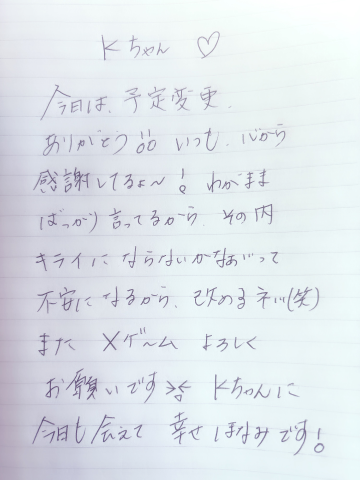 Kちゃん ♡
今日は、予定変更、
ありがとう!! いつも、心から
感謝してるよ〜! わがまま
ばっかり言ってるから、その内
キライにならないかなぁって
不安になるから、改めるネ!!(笑)
また Xゲーム よろしく
お願いです >< Kちゃんに
今日も会えて 幸せ ほなみです!